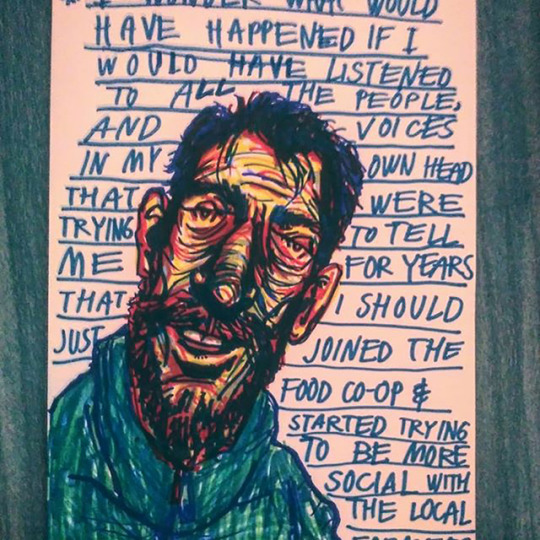 "I WONDER WHAT WOULD
HAVE HAPPENED IF I
WOULD HAVE LISTENED
TO ALL THE PEOPLE,
AND VOICES
IN MY OWN HEAD
THAT WERE
TRYING TO TELL
ME FOR YEARS
THAT I SHOULD
JUST JOINED THE
FOOD CO-OP &
STARTED TRYING
TO BE MORE
SOCIAL WITH
THE LOCAL